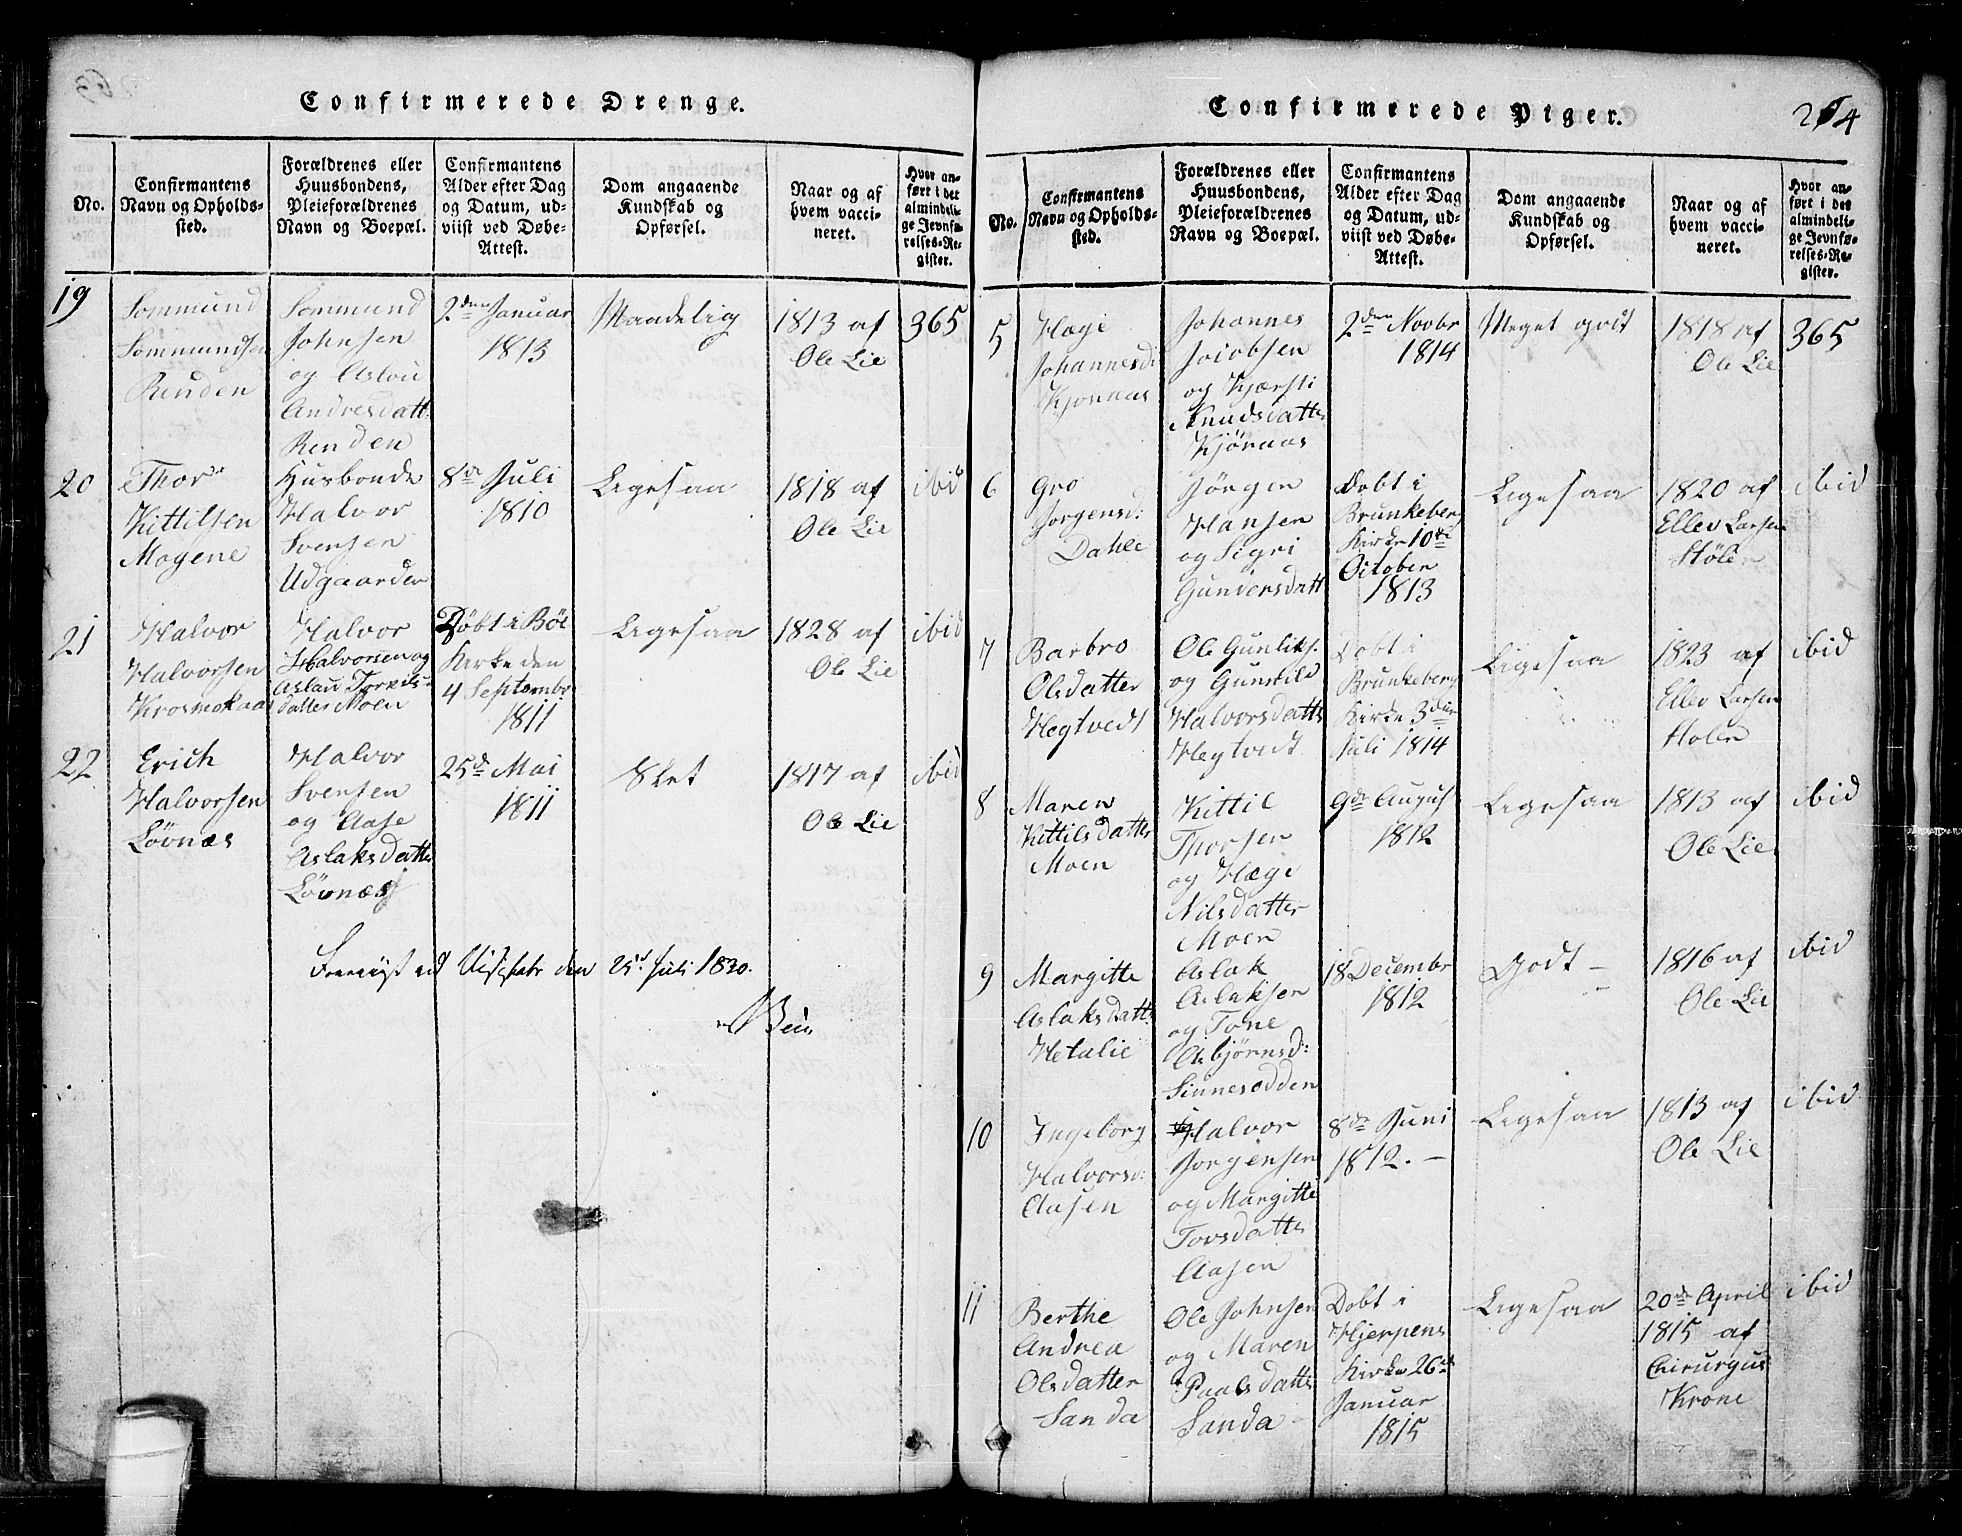 Confirmerede Drenge.
No.
Confirmantens
Navn og Opholds-
sted.
Forældrenes eller
Huusbondens,
Pleieforældrenes
Navn og Boepæl.
Confirmantens
Alder efter Dag
og Datum, ud-
viist ved Døbe-
Attest.
Dom angaaende
Kundskab og
Opførsel.
Naar og af
hvem vacci-
neret.
Hvor an-
ført i det
almindeli-
ge Jevnfø-
relses-Re-
gister.
19
Sommund
Sommundsen
Renden
Sommund
Johnsen
og Aslou
Andresdatt:
Renden
2den Januar
1813
Maadelig
1813 af
Ole Lie
365
20
Thor
Kittilsen
Mogene
Husbonde
Halvor
Svensen
Udgaarden
8de Juli
1810
Ligesaa
1818 af
Ole Lie
ibid
21
Halvor
Halvorsen
Halvor
Halvorsen og
Aslau Torkils-
datter Moen
Döbt i Böe
Kirke den
4 Septembr
1811
Ligesaa
1828 af
Ole Lie
ibid
22
Erich
Halvorsen
Lövnæs
Halvor
Svensen
og Aase
Aslaksdatter
Lövnæs
25de Mai
1811
Slet
1817 af
Ole Lie
ibid
den 25d Juli 1830.
Confirmerede Piger.
264
No.
Confirmantens
Navn og Opholds-
sted.
Forældrenes eller
Huusbondens,
Pleieforældrenes
Navn og Boepæl.
Confirmantens
Alder efter Dag
og Datum, ud-
viist ved Døbe-
Attest.
Dom angaaende
Kundskab og
Opførsel.
Naar og af
hvem vacci-
neret.
Hvor an-
ført i det
almindeli-
ge Jevnfø-
relses-Re-
gister.
5
Hæge
Johannesd:
Kjönaas
Johannes
Jacobsen
og Kjærsti
Knudsdatter
Kjönaas
2den Novbr
1814
Meget godt
1818 af
Ole Lie
365
6
Gro
Jörgensd:
Dahle
Jörgen
Hansen
og Sigri
Gundersdatt
Dobt i
Brunkeberg
Kirke 10de
October
1813
Ligesaa
1820 af
Ellev Larsen
Stölen
ibid
7
Barbro
Olsdatter
Hegtvedt
Ole Gunliks.
og Gunnild
Halvorsdatter
Hegtvedt
Dobt i
Brunkeberg
Kirke 3die
Juli 1814
Ligesaa
1823 af
Ellev Larsen
ibid
8
Maren
Kittilsdatter
Moen
Kittil
Thorsen
og Hæge
Nilsdatter
Moen
9de August
1812
Ligesaa
1813 af
Ole Lie
ibid
9
Margitte
Aslaksdatt:
Hetalie
Aslak
Aslaksen
og Tone
Asbjörnsd:
Sinnesodden
18 Decembr
1812
Godt –
1816 af
Ole Lie
ibid
10
Ingeborg
Halvorsd:
Aasen
Halvor
Jorgensen
og Margitte
Tovsdatter
Aasen
8de Juni
1812. –
Ligesaa
1813 af
Ole Lie
ibid
11
Berthe
Andrea
Olsdatter
Sanda
Ole Johnsen
og Maren
Paalsdatter
Sanda
Dobt i
Hjerpens
Kirke 26de
Januar
1815
Ligesaa
20de April
1815 af
Chirurgus
Krone
ibid